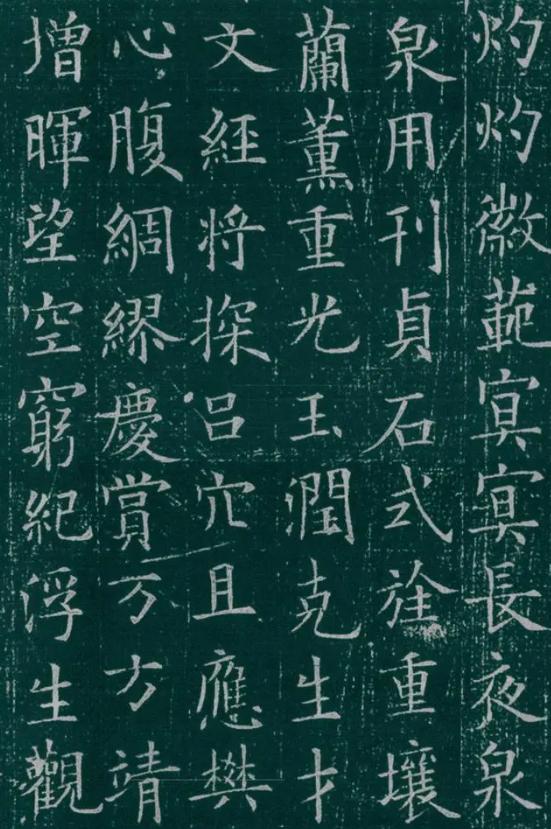 灼灼徽範冥冥長夜泉
泉用刊貞石式旌重壤
蘭薰重光玉潤克生才
文經将探吕穴且應樊
心腹綢繆慶賞万方靖
増暉望空窮紀浮生觀